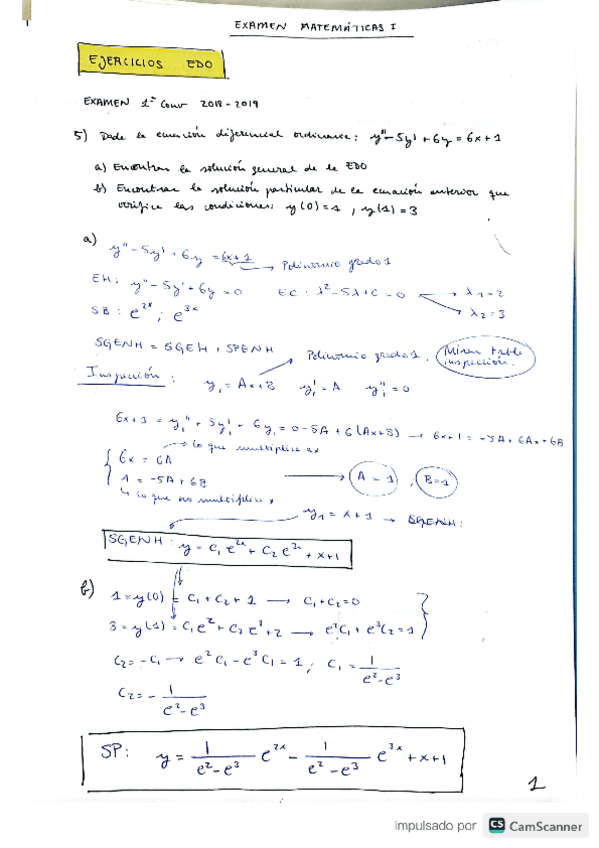 EXAMEN MATEMÁTICAS I
EJERCICIOS EDO
EXAMEN 1ª Conv 2018-2019
5) Dada la ecuación diferencial ordinaria: y''-5y'+6y=6x+1
a) Encontrar la solución general de la EDO
b) Encontrar la solución particular de la ecuación anterior que
verifica las condiciones: y(0)=1, y(1)=3
a) y''-5y'+6y=6x+1 → Polinomio grado 1
EH: y''-5y'+6y=0 EC: λ²-5λ+6=0 → λ₁=2
→ λ₂=3
SB: e^2x; e^3x
SGENH = SGEH + SPENH
Polinomio grado 1. Mirar tabla inspección.
Inspección: y₁=Ax+B y₁'=A y₁''=0
6x+1 = y₁''+5y₁'+6y₁=0-5A+6(Ax+B) → 6x+1=-5A+6Ax+6B
→ lo que multiplica x
6x=6A
1=-5A+6B → A=1, B=1
↳ lo que no multiplica x
y₁=x+1 → SGENH:
SGENH: y=C₁e^2x+C₂e^3x+x+1
b) 1=y(0)=C₁+C₂+1 → C₁+C₂=0
3=y(1)=C₁e²+C₂e³+2 → e²C₁+e³C₂=1
C₂=-C₁ → e²C₁-e³C₁=1; C₁=1/(e²-e³)
C₂=-1/(e²-e³)
SP: y=1/(e²-e³) e^2x - 1/(e²-e³) e^3x+x+1
1
impulsado por CS CamScanner